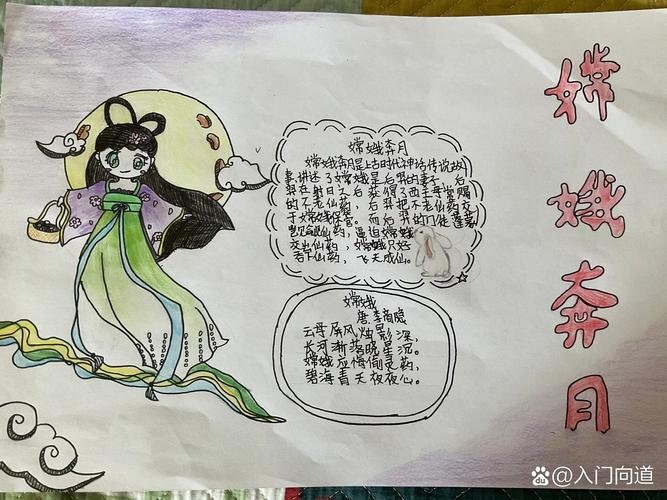 嫦娥奔月
嫦娥奔月
嫦娥奔月是上古时代神话传说故
事,讲述了嫦娥是后羿的妻子,后
羿在射日之后获得了西王母赏赐
的不老仙药,后羿把不老仙药交
于嫦娥保管。而后羿的门徒蓬蒙
仙药,逼迫嫦娥
交出仙药,嫦娥只好
吞下仙药,飞天成仙。
嫦娥
唐.李商隐
云母屏风烛影深,
长河渐落晓星沉。
嫦娥应悔偷灵药,
碧海青天夜夜心。
Baidu @入门向道